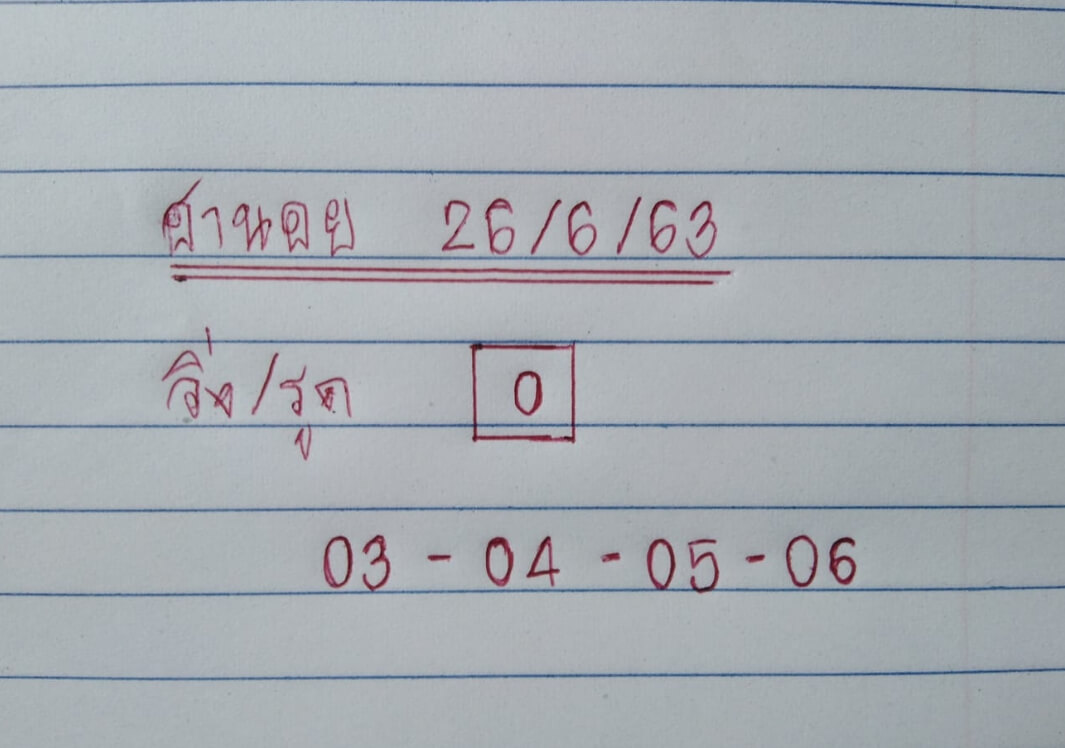 ฮานอย 26/6/63
วิ่ง/รูด 0
03 - 04 - 05 - 06